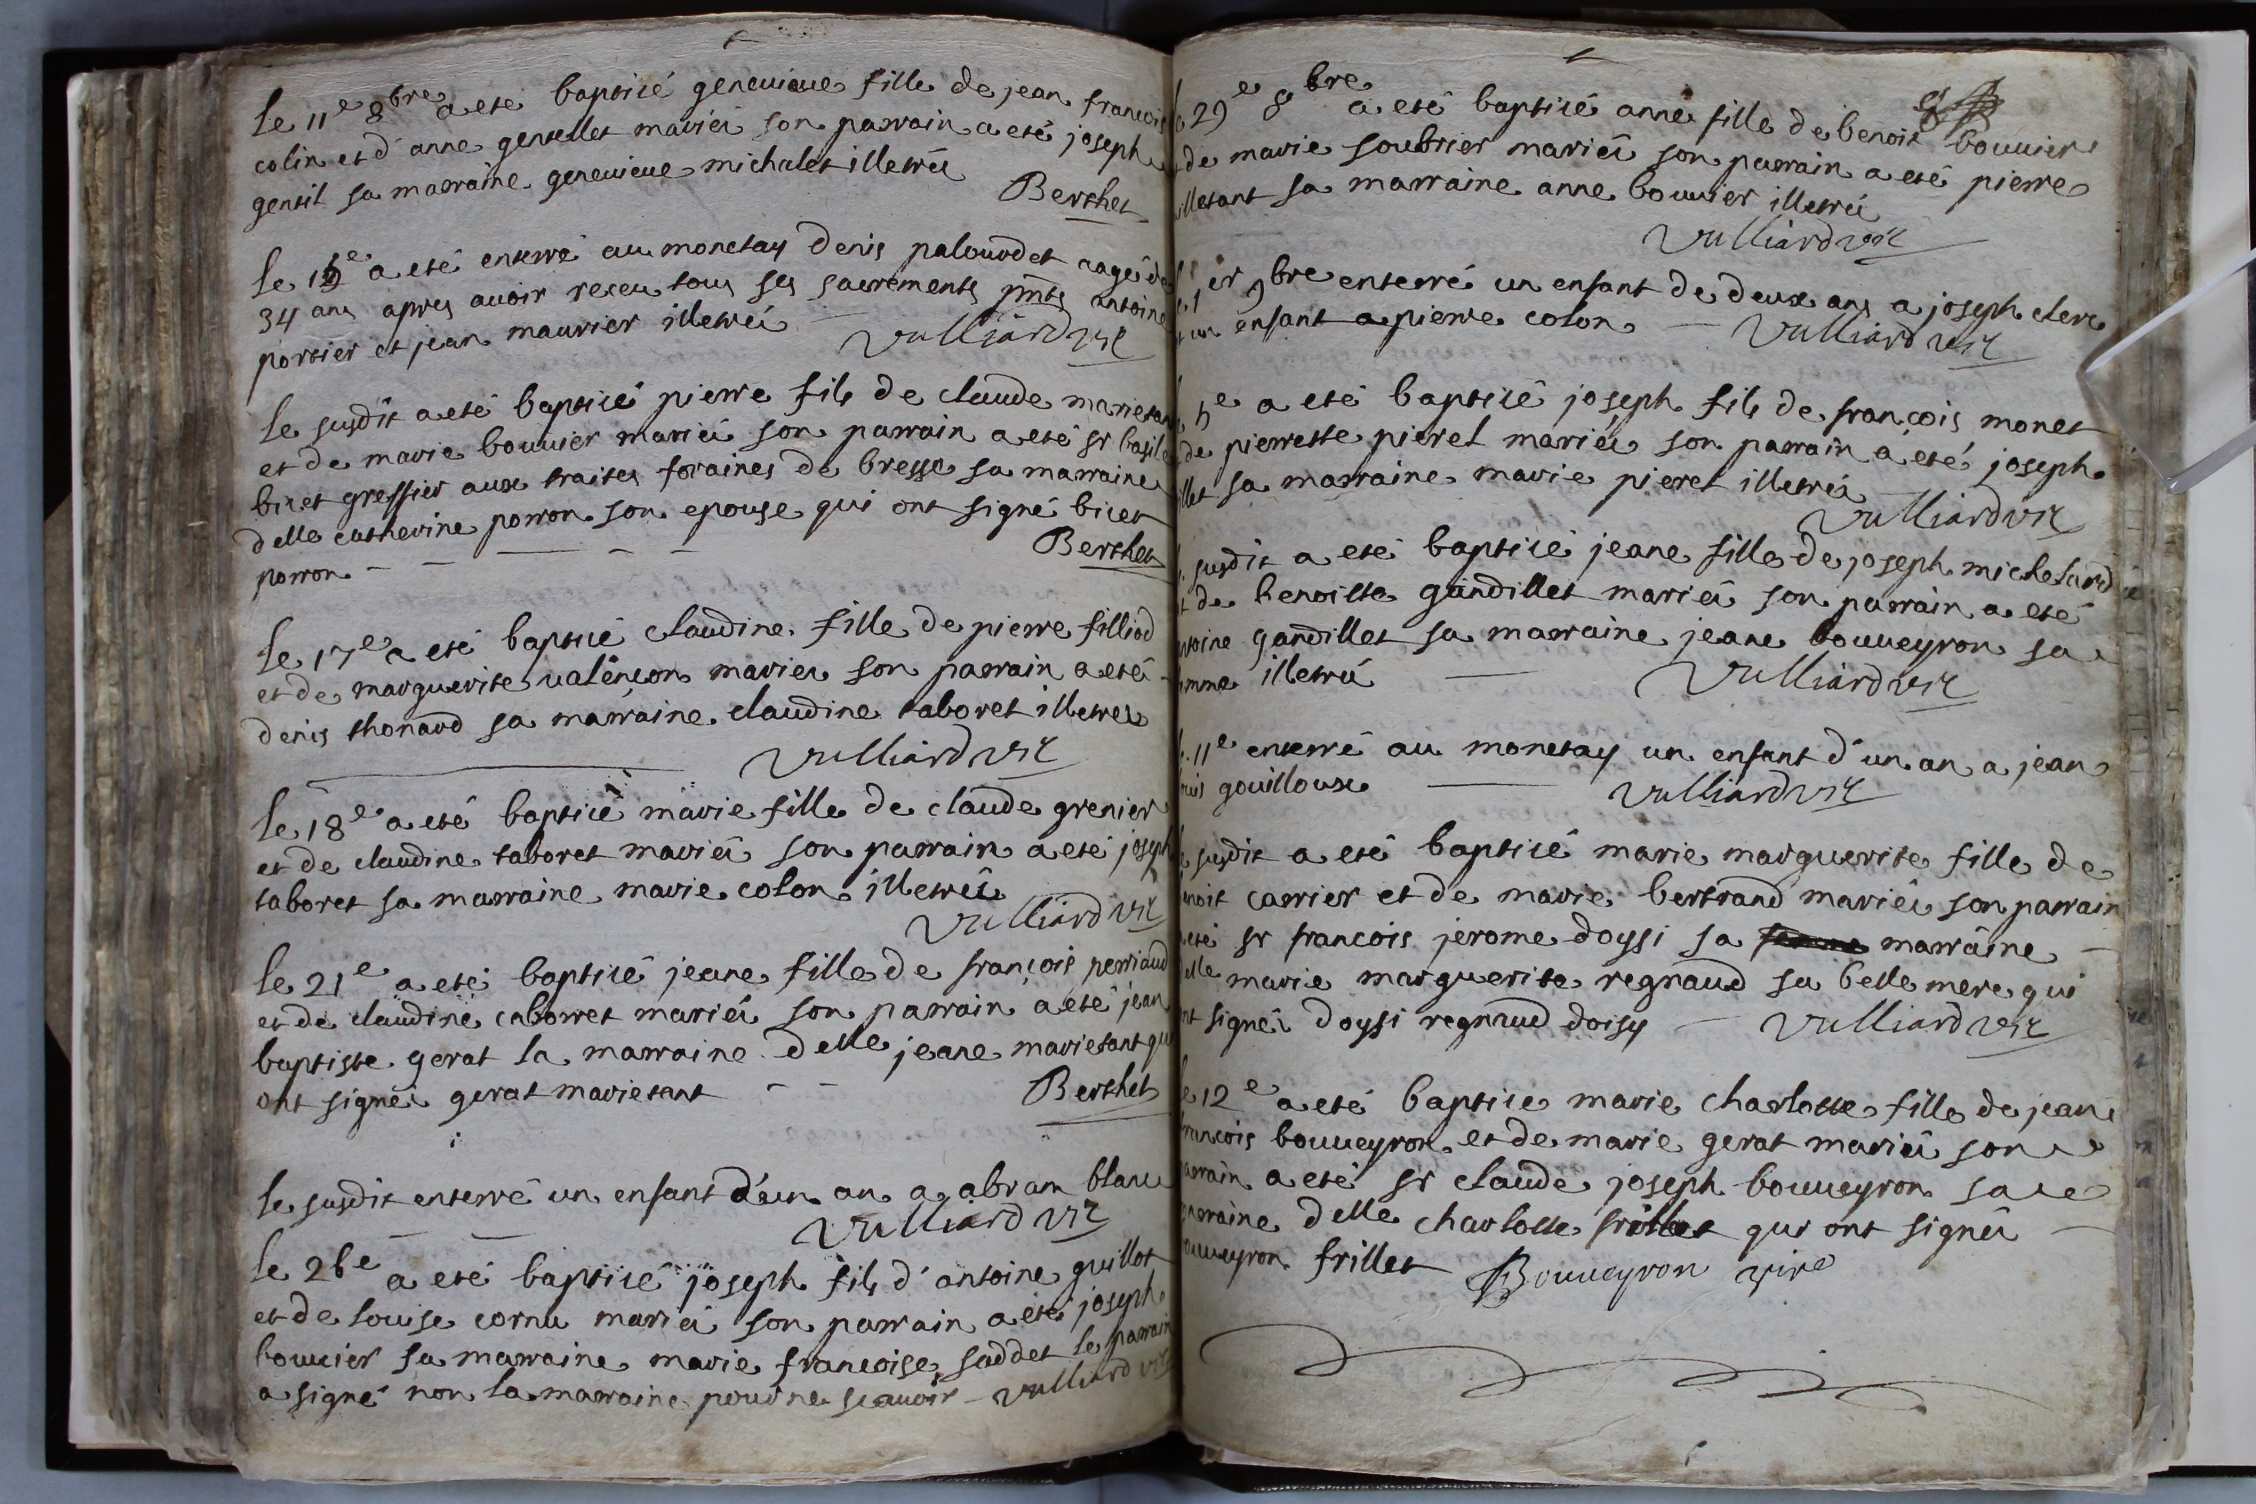 le 11e 8bre a eté baptisé genevieve fille de jean francois
colin et d'anne gentellet mariés son parrain a eté joseph
gentil sa marraine genevieve michalet illetrés
Berthet
le 12e a eté enterré au monetay denis palourdet agé de
34 ans apres avoir receu tous ses sacrements pnts antoine
portier et jean maurier illetrés
Vulliard vic
le susdit a eté baptisé pierre fils de claude marietant
et de marie bouvier mariés son parrain a eté sr basile
bicet greffier aux traites foraines de bresse sa marraine
delle catherine porron son epouse qui ont signé bicet
porron
Berthet
le 17e a eté baptisé claudine fille de pierre filliod
et de marguerite valençon mariés son parrain a eté
denis thonard sa marraine claudine taboret illetrés
Vulliard vic
le 18e a eté baptisé marie fille de claude grenier
et de claudine taboret mariés son parrain a eté joseph
taboret sa marraine marie colon illetrés
Vulliard vic
le 21e a eté baptisé jeane fille de françois perriaud
et de claudine caborret mariés son parrain a eté jean
baptiste gerat la marraine delle jeane marietant qui
ont signés gerat marietant
Berthet
le susdit enterré un enfant d'un an a abram blanc
Vulliard vic
le 26e a eté baptisé joseph fils d'antoine guillot
et de louise cornu mariés son parrain a eté joseph
bouvier sa marraine marie francoise saddet le parrain
a signé non la marraine pour ne scavoir Vulliard vic
29e 8bre a eté baptisé anne fille de benoit bouvier
de marie soubrier mariés son parrain a eté pierre
illetant sa marraine anne bouvier illetrés
Vulliard vic
1er 9bre enterré un enfant de deux ans a joseph clerc
un enfant a pierre colon
Vulliard vic
5e a eté baptisé joseph fils de françois monet
de pierrette pieret mariés son parrain a eté joseph
illet sa marraine marie pieret illetrés
Vulliard vic
susdit a eté baptisé jeane fille de joseph michelard
de benoitte gandillet mariés son parrain a eté
antoine gandillet sa marraine jeane bouveyron sa
femme illetrés
Vulliard vic
11e enterré au monetay un enfant d'un an a jean
gouilloux
Vulliard vic
susdit a eté baptisé marie marguerite fille de
benoit carrier et de marie bertrand mariés son parrain
a eté sr françois jerome doysi sa marraine
delle marie marguerite regnaud sa belle mere qui
ont signés doysi regnaud doisy
Vulliard vic
le 12e a eté baptisé marie charlotte fille de jean
françois bouveyron et de marie gerat mariés son
parrain a eté sr claude joseph bouveyron sa
marraine delle charlotte frillet qui ont signés
bouveyron frillet Bouveyron vire